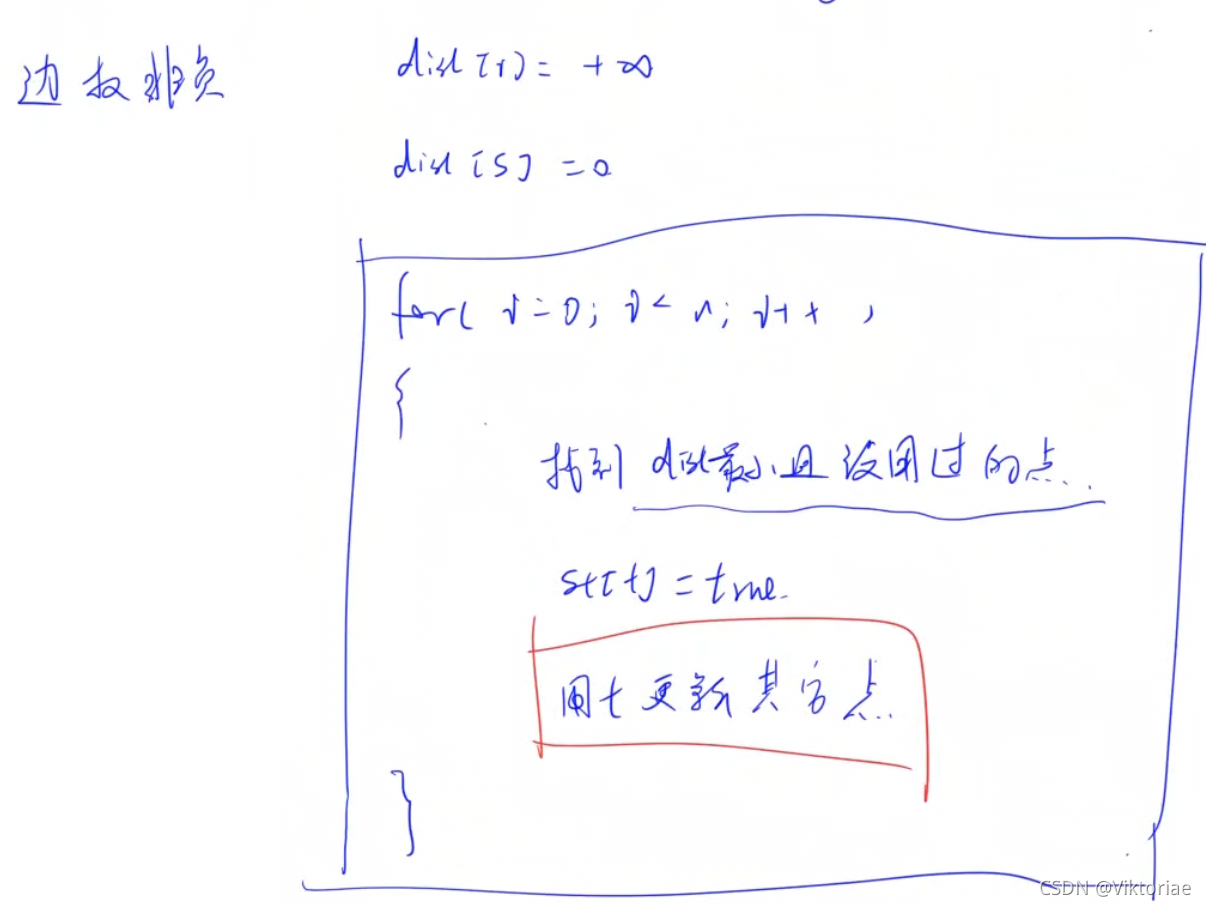 边权非负
dist[i] = +∞
dist[S] = 0
for( i=0; i< n; i++ )
{
找到 dist最小且没用过的点.
st[t] = true.
用t更新其它点.
}
CSDN @Viktoriae